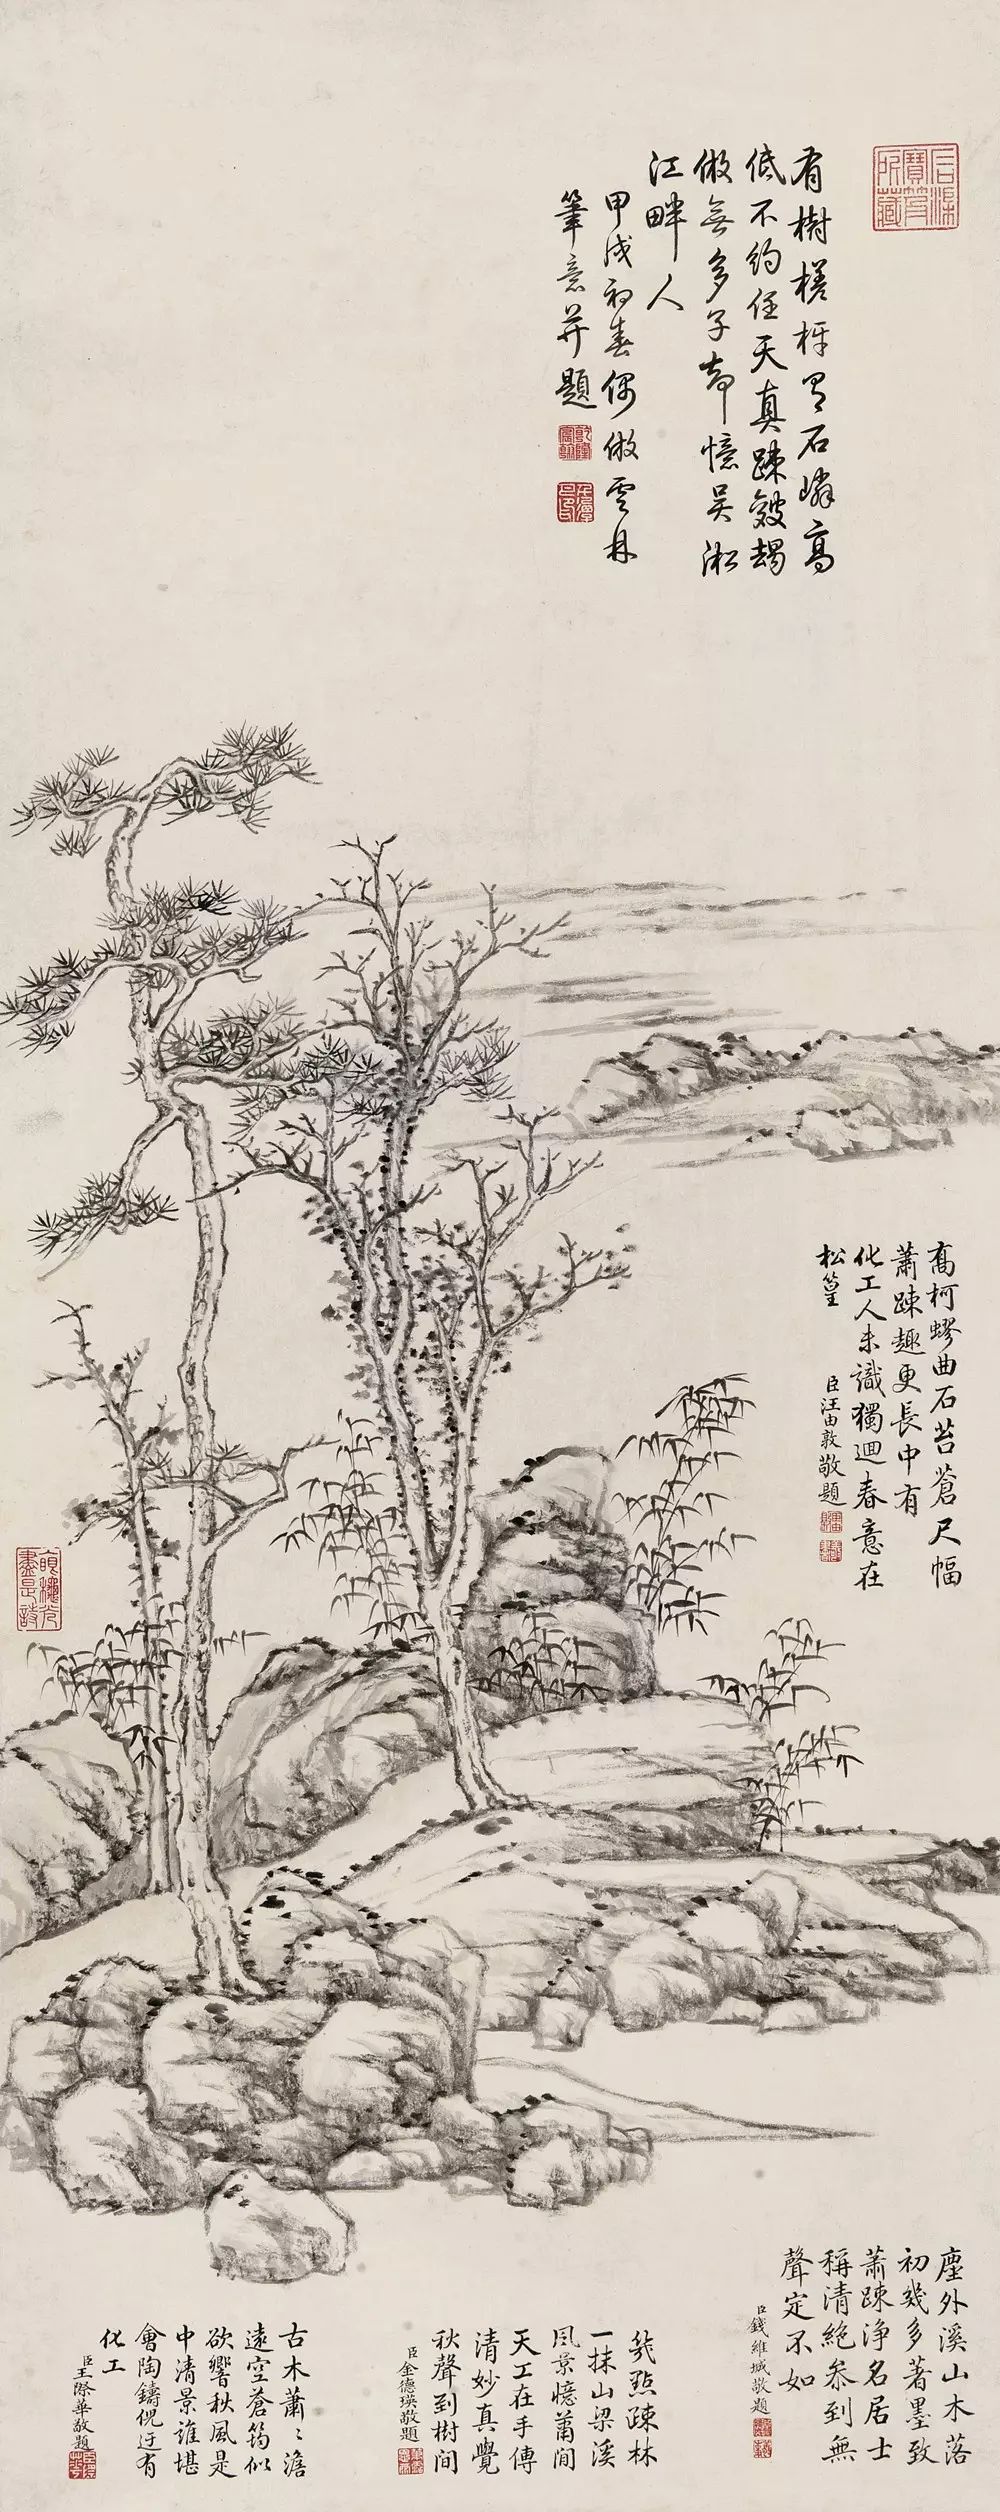 有樹槎枒又石嶙高
低不約任天真踈皴
倣無多子却憶吴淞
江畔人
甲戌初春偶倣雲林
筆意并題
乾隆
喬柯蟉曲石苔蒼尺幅
蕭踈趣更長中有
化工人未識獨迴春意在
松篁
臣汪由敦敬題
塵外溪山木落
初幾多著墨致
蕭踈淨名居士
稱清絶叅到無
聲定不如
臣錢維城敬題
幾點踈林
一抹山梁溪
風景憶蕭閒
天工在手傳
清妙真覺
秋聲到樹間
臣金德瑛敬題
古木蕭〻澹
遠空蒼筠似
欲響秋風是
中清景誰堪
會陶鑄倪迂有
化工
臣王際華敬題